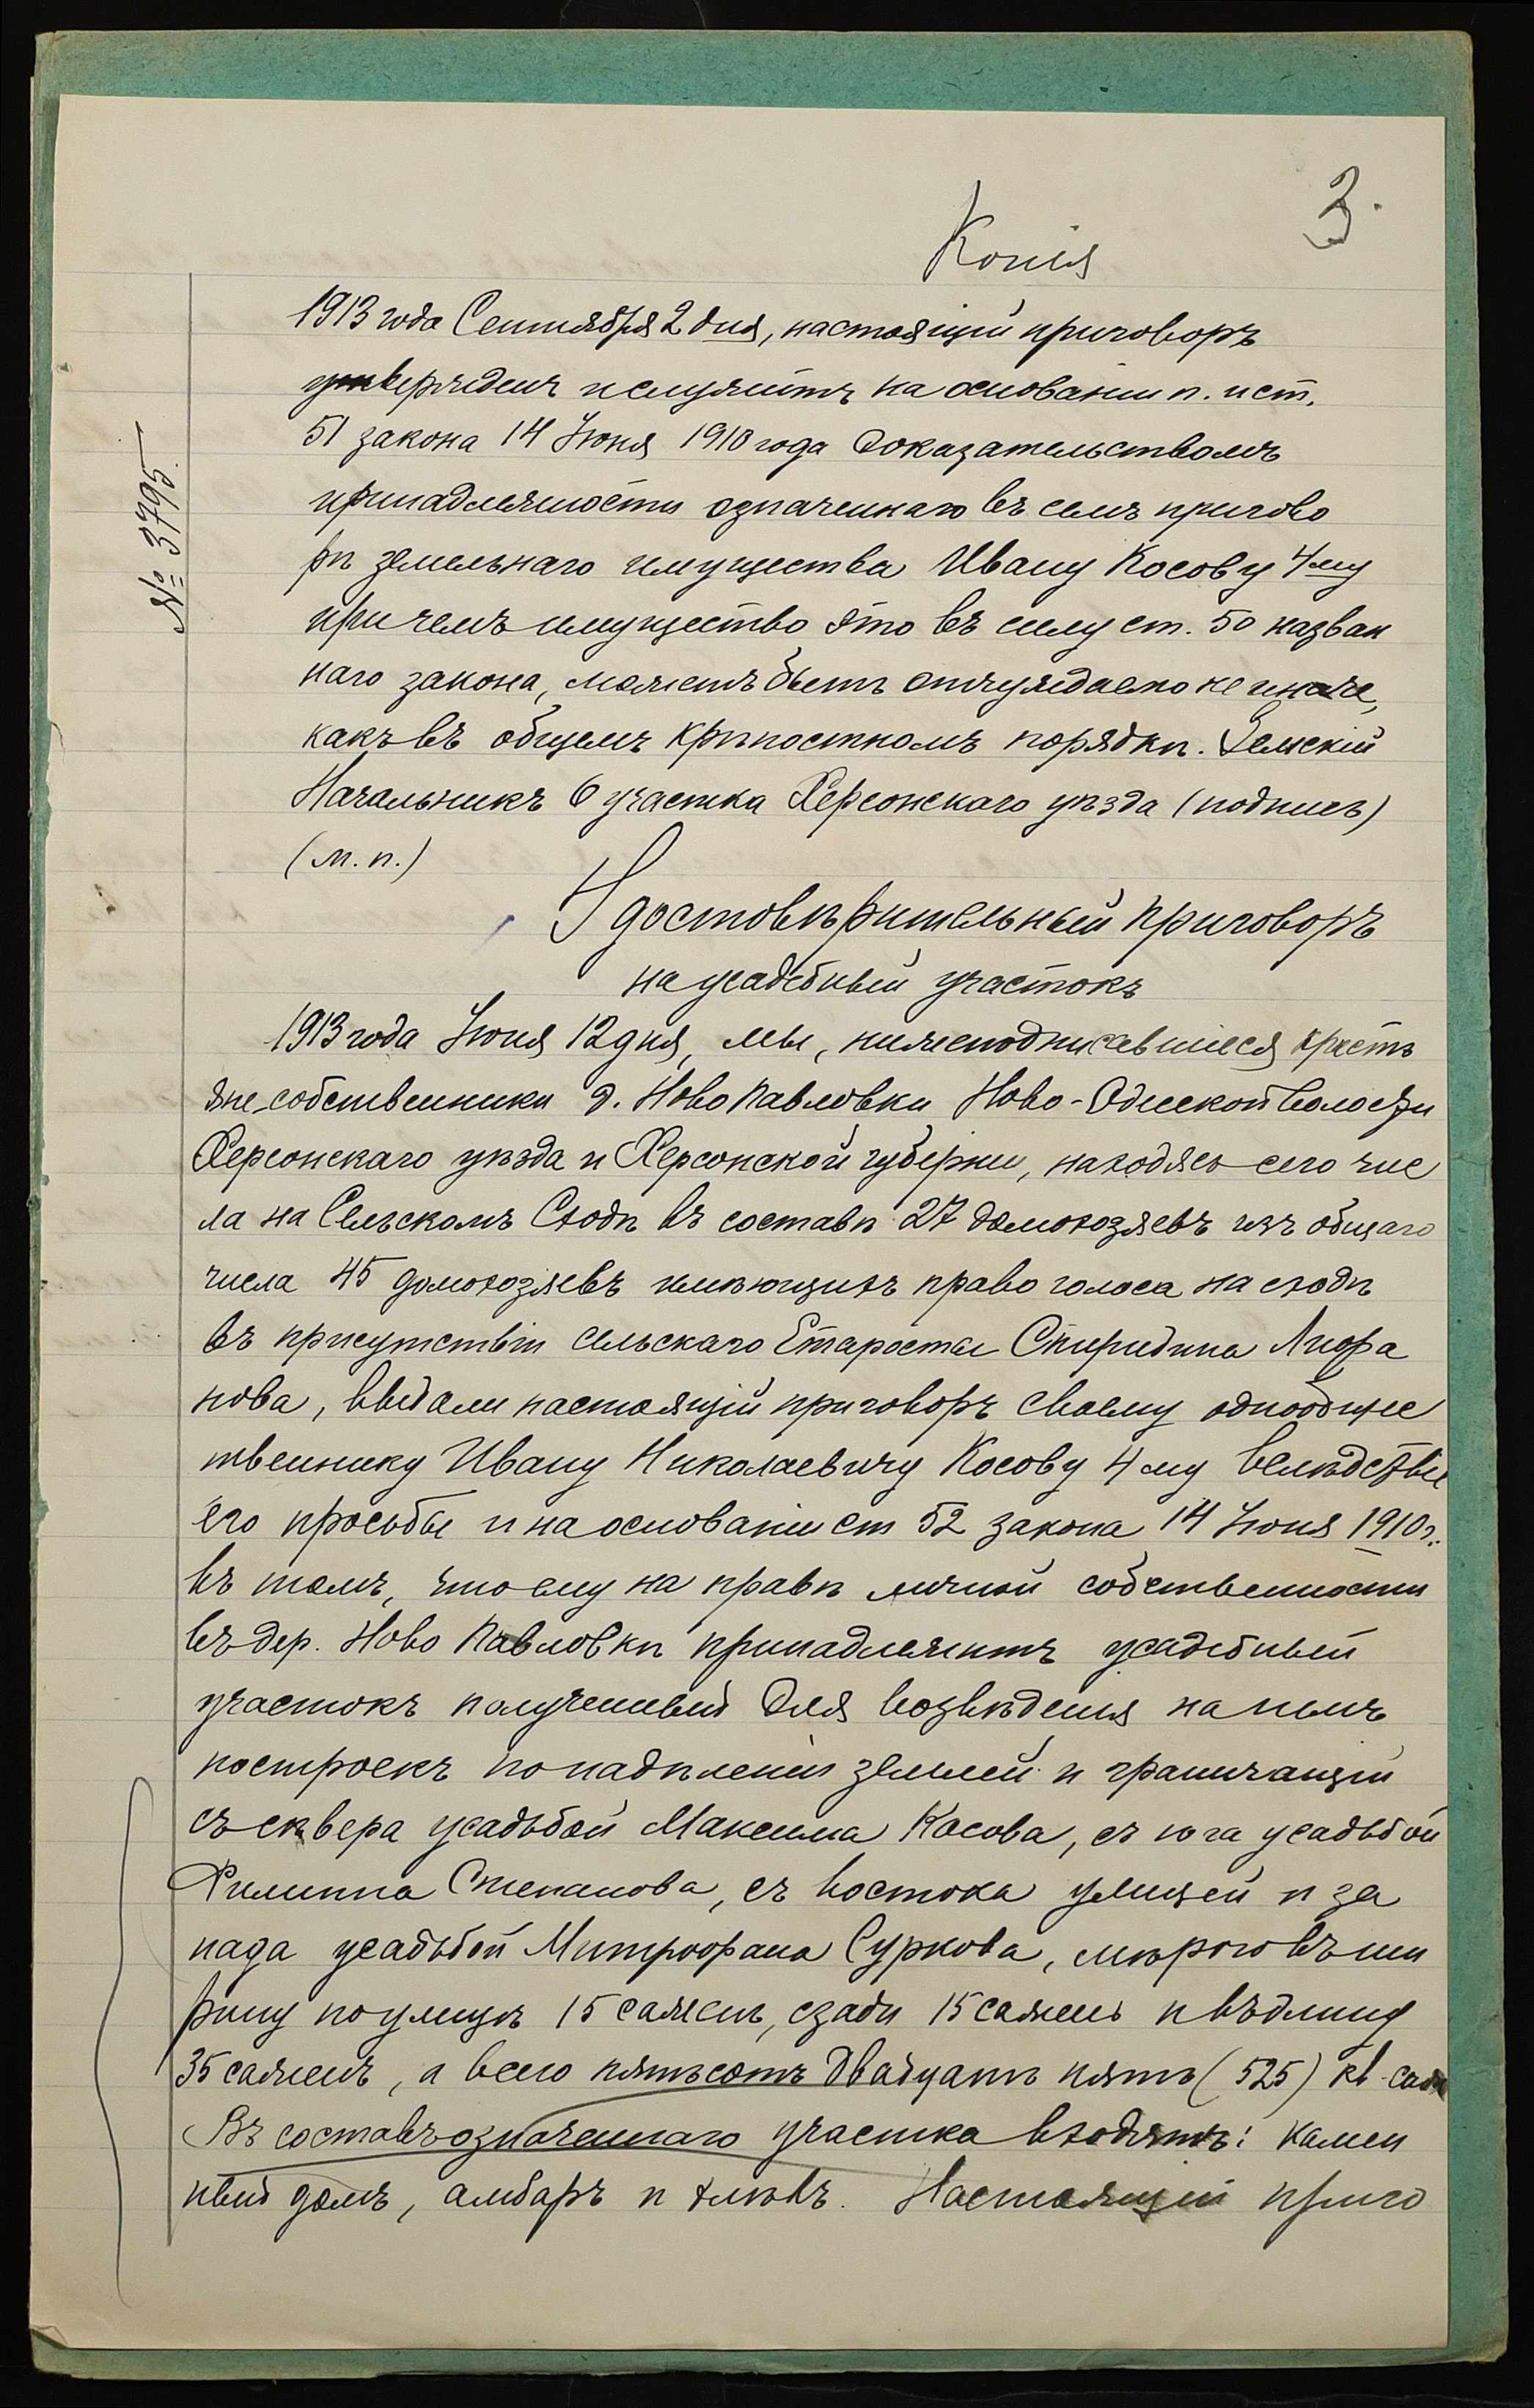 3.
Копія
№ 3795
1913 года Сентября 2 дня, настоящій приговоръ
утвержденъ и служитъ на основаніи п. и ст.
51 закона 14 Іюня 1910 года доказательствомъ
принадлежности означеннаго въ семъ пригово
рѣ земельнаго имущества Ивану Косову 4му
причемъ имущество это въ силу ст. 50 назван
наго закона, можетъ быть отчуждаемо не иначе,
какъ въ общемъ крѣпостномъ порядкѣ. Земскій
Начальникъ 6 участка Херсонскаго уѣзда (подпись)
(м. п.)
Удостовѣрительный приговоръ
на усадебный участокъ
1913 года Іюня 12 дня, мы, нижеподписавшіеся кресть
яне-собственники д. Ново Павловки Ново-Одесской волости
Херсонскаго уѣзда и Херсонской губерніи, находясь сего чис
ла на Сельскомъ Сходѣ въ составѣ 27 домохозяевъ изъ общаго
числа 45 домохозяевъ имѣющихъ право голоса на сходѣ
въ присутствіи сельскаго Старосты Спиридона
нова, выдали настоящій приговоръ своему однообщес
твеннику Ивану Николаевичу Косову 4му вслѣдствіе
его просьбы и на основаніи ст 52 закона 14 Іюня 1910 г.
въ томъ, что ему на правѣ личной собственности
въ дер. Ново Павловкѣ принадлежитъ усадебный
участокъ полученный для возведенія на немъ
построекъ по надѣленіи землей и граничащій
съ сѣвера усадьбой Максима Косова, съ юга усадьбой
Филиппа Степанова, съ востока улицей и за
пада усадьбой Митрофана Суркова, мѣрою въ ши
рину по улицѣ 15 сажень, сзади 15 сажень и въ длину
35 сажень, а всего пятьсотъ двадцать пять (525) кв. саж
Въ составъ означеннаго участка входятъ: камен
ный домъ, амбаръ и хлѣвъ. Настоящій приго